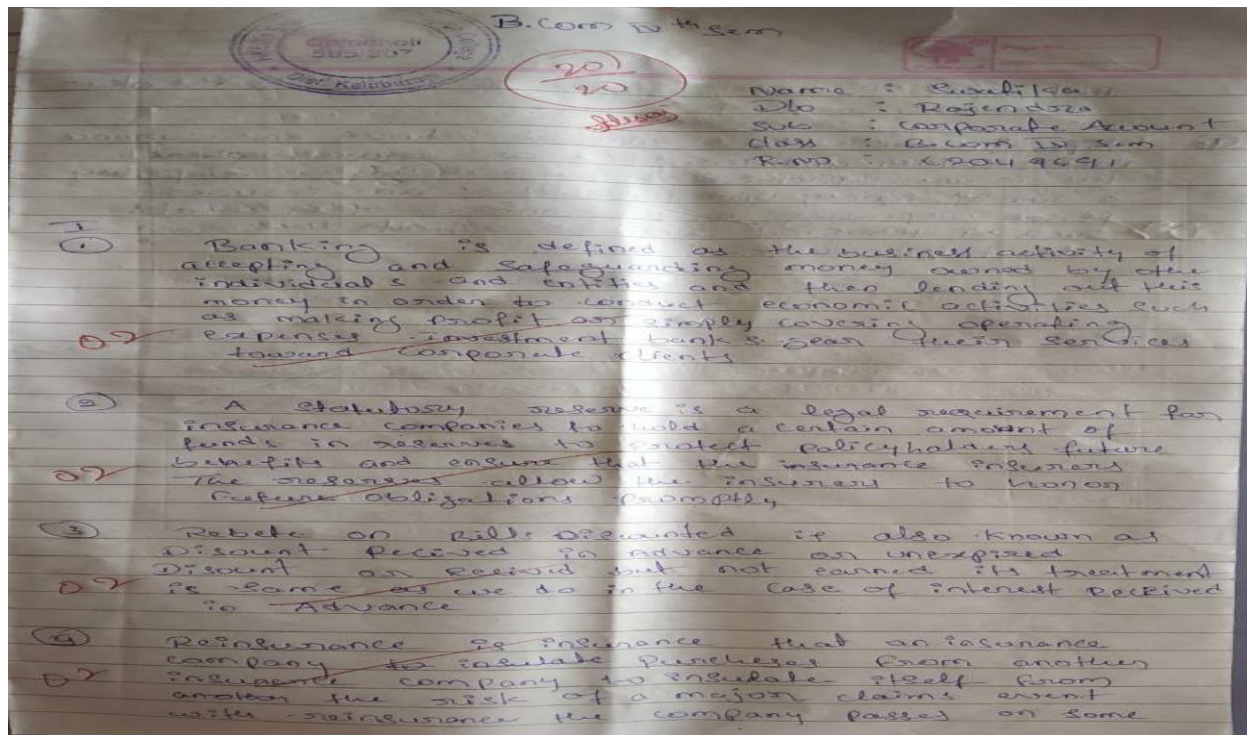 B.Com IV th Sem
Chincholi
585 307
Dist. Kalaburagi
20
20
Name :
D/o : Rajendra
Sub : Corporate Account
Class : B.Com IV Sem
R.NO :
I
1. Banking is defined as the business activity of
accepting and Safeguarding money owned by othe
individuals and entities and then lending out this
money in order to conduct economic activities such
as making profit or simply covering operating
02 expenses investment banks gear their services
toward Corporate clients
2 A Statutory reserve is a legal requirement for
insurance companies to hold a certain amount of
funds in reserves to protect policyholders future
02 benefits and ensure that the insurance insurers
The reserves allow the insurers to honor
Future obligations promptly
3 Rebate on Bills Discounted is also known as
Discount Received in Advance or unexpired
Discount or Received but not earned its treatment
02 is Same as we do in the Case of interest Received
in Advance
4 Reinsurance is insurance that an insurance
company to insulate Purcheses from another
02 insurance company to insulate itself from
another the risk of a major claims event
with reinsurance the company passes on some